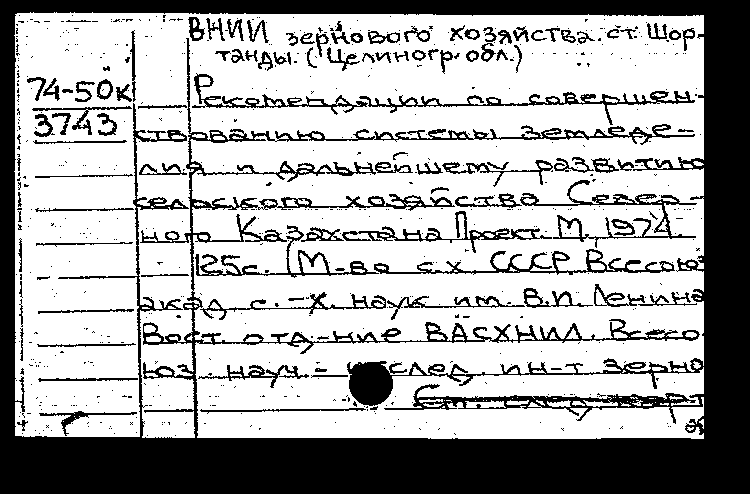 ВНИИ зернового хозяйства. ст. Шор-
танды. (Целиногр. обл.)
74-50к
3743
Рекомендации по совершен-
ствованию системы земледе-
лия и дальнейшему развитию
сельского хозяйства Север-
ного Казахстана. Проект. М., 1974.
125с. (М-во с.х. СССР. Всесоюз
акад. с.-х. наук им. В.И. Ленина
Вост. отд-ние ВАСХНИЛ. Всесо
юз. науч.-исслед. ин-т зерно
См. след. карт